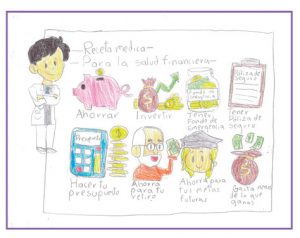 Receta medica
Para la salud financiera
Ahorrar
Invertir
Fondo de
emergencia
Tener
Fondo de
Emergencia
Poliza de
seguro
Tener
Poliza de
seguro
Presupuesto
Hacer tu
presupuesto
Ahorra
para tu
retiro
Ahorra para
tus metas
futuras
Gasta menos
de lo que
ganas